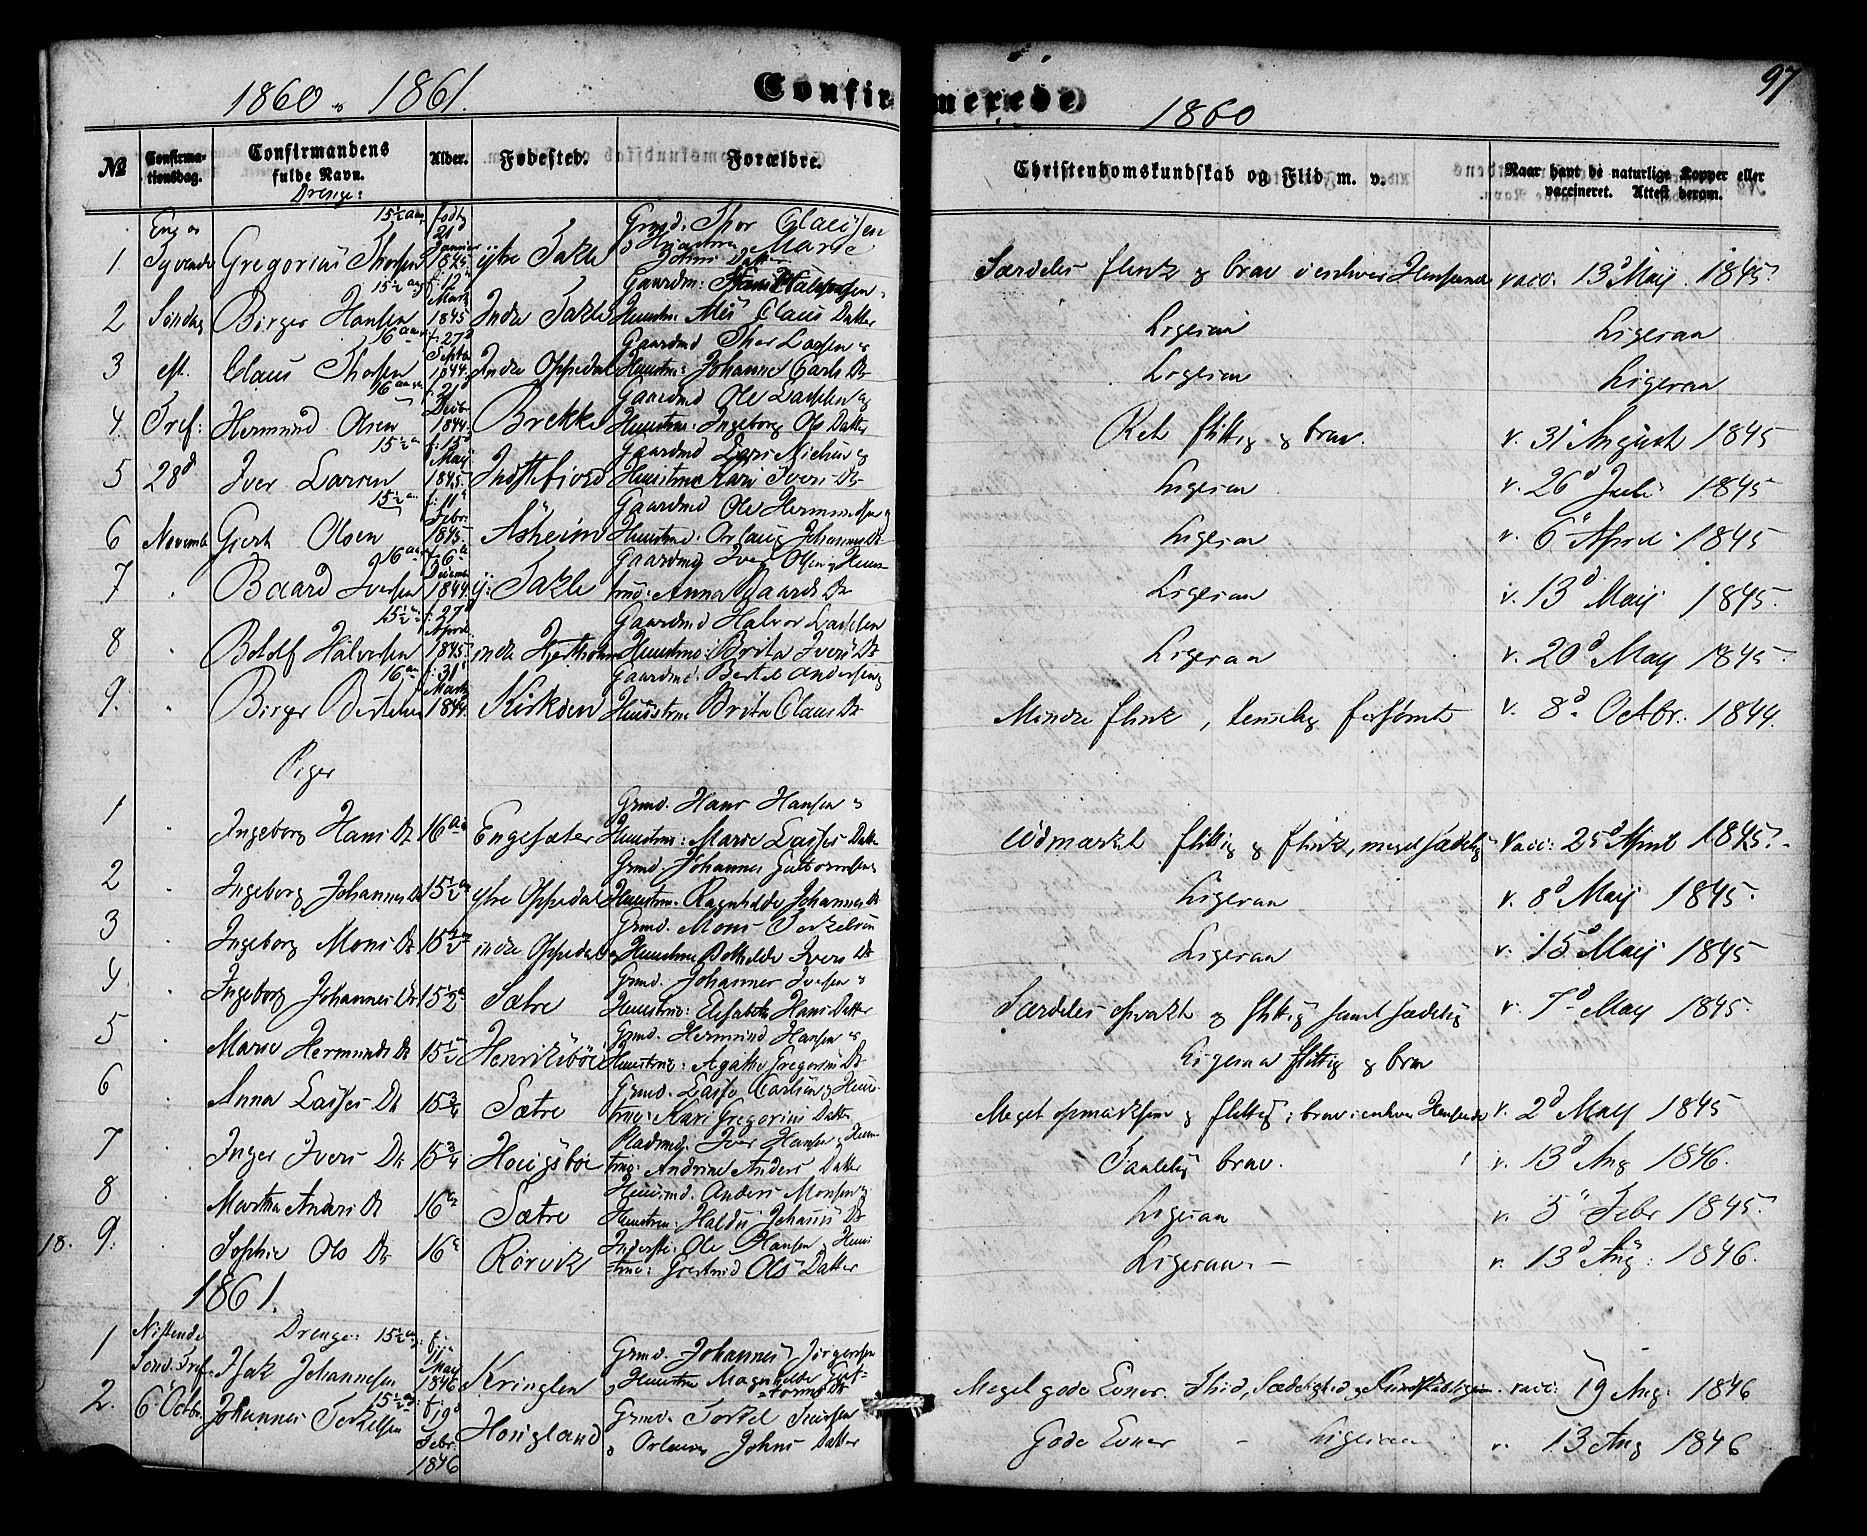 1860 og 1861.
Confirmerede.
1860
97
№
Confirmationsdag.
Confirmandens fulde Navn.
Alder.
Fødested.
Forældre.
Christendomskundskab og Flid m. v.
Naar havt de naturlige Kopper eller vaccineret. Attest derom.
Drenge:
1 Een og Tyvende Gregorius Thorsen 15½ aar født 21d Januar 1845 ytre Takle Grmd. Thor Clausen og Huustroe Marie Johns Datter Særdeles flink og brav i enhver Henseende vacc. 13d Maij 1845.
2 Søndag Birger Hansen 15½ aar f. 12 Marts 1845 Indre Takle Gaardm: Huustroe: Claus Datter Ligesaa Ligesaa
3 eft. Claus Thorsen 16 aar f. 27d Septbr 1844. Indre Oppedal Gaardmd Thor Lassen og Huustroe: Johanne Carls Dr Ligesaa Ligesaa
4. Tref: Hermund Olsen 16 aar f. 21d Decbr 1844. Brekke Gaardmd Ole Lassen og Huustroe: Ingeborg Ols Datter Ret flittig og brav. v. 31 August 1845
5 28d Iver Larsen 15½ a f. 15d Maij 1845. Instefjord Gaardmd Lars og Huustroe Kari Ivers Dr Ligesaa v. 26d Juli 1845
6 Novemb Gjert Olsen 15½ a. f. 11 Febr. 1845. Åsheim Gaardmd Ole Hermundsen og Huustroe. Orlaug Johannes Dr Ligesaa v. 6 April 1845
7 Baard Iversen 16 aar f. 6 Decemb 1844. y: Takle Gaardmd Iver Olsen og Huustroe: Anna Baards Dr Ligesaa v. 13d Maij 1845.
8 Botolf Halvorsen 15½ a f. 27d April 1845. indre Hjertholm Gaardmd Halvor Lassen Huustroe: Brita Ivers Dr Ligesaa v. 20d Maij 1845.
9. Birger Bertelsen 16 aar f. 31 Marts 1844. Kirkøen Gaardmd. Bertel Andersen og Huustroe Brita Claus Dr Mindre flink, temmelig forsømt v. 8d Octbr. 1844.
Piger
1 Ingeborg Hans Dr 16 aar Engesæter Grmd. Hans Hansen og Huustroe: Marie Lasses Datter Udmærket flittig og flink, meget sædelig Vacc: 25d April 1845.
2 Ingeborg Johannes Dr 15½ a ytre Oppedal Grmd. Johannes Guttormsen og Huustroe. Ragnhilde Johannes Dr Ligesaa v. 8d Maij 1845.
3 Ingeborg Mons Dr 15½ indre Oppedal Grmd. Mons Terkelsen og Huustroe Bothilde Ivers Dr Ligesaa v. 15d Maij 1845
4 Ingeborg Johannes Dr 15½ a Sætre Grmd. Johannes Iversen og Huustroe: Elisabeth Hans Datter Særdeles opvakt og flittig samt sædelig v. 7d Maij 1845.
5 Marie Hermunds Dr 15½ Henriksbøe Grmd. Hermund Hansen og Huustroe: Agathe Gregorius Dr Ligesaa flittig og brav
6 Anna Lasses Dr 15¾ Sætre Grmd. Lasse Carlsen og Huustroe: Kari Gregorius Datter Meget opmærksom og flittig, brav i enhver Henseende v. 2d Maij 1845
7 Inger Ivers Dr 15¾ Hougsbøe Pladsmd. Iver Hansen og Huustroe: Andrine Anders Datter Taalelig brav. v. 13d Aug 1846.
8 Martha Anders Dr 16 a Sætre Huusmd. Anders Monsen og Huustroe: Johans Dr Ligesaa v. 5 Febr 1845.
18. 9. Sophie Ols Dr 16 a Rørvik Inderste: Ole Hansen og Huustroe: Ols Datter Ligesaa. v. 13d Aug: 1846.
1861.
Drenge:
1 Nittende Sønd. Tref. Isak Johannesen 15½ a f: Maij 1846 Kringlen Grmd. Johannes Jørgensen og Huustroe Magnhilde Guttorms Dr Meget gode Evner. Flid, Sædelighed og vacc: 19 Aug: 1846
2. 6 Octbr. Johannes Terkelsen 15½ a f: 19d Febr. 1846 Hougland Grmd. Torkel og Johns Datter Gode Evner – Ligesaa v. 13 Aug 1846